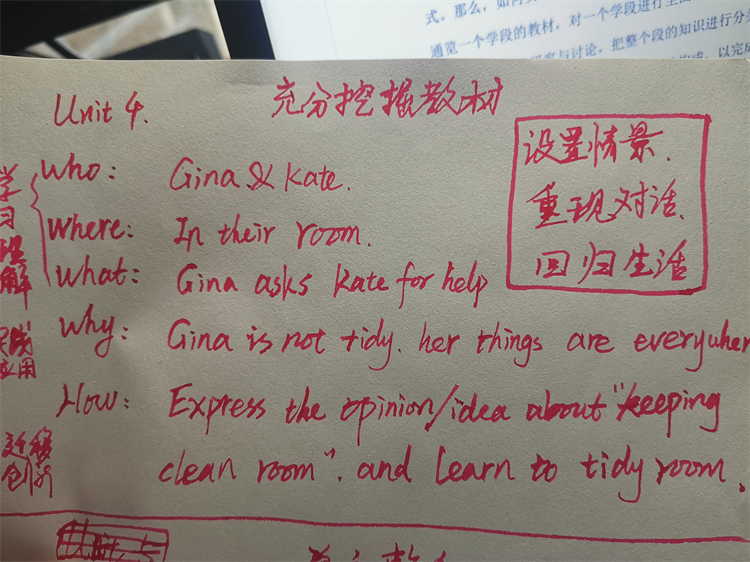 式。那么，如何
通览一个学段的教材，对一个学段进行全面
究与讨论，把整个段的知识进行分
以完成
Unit 4.
充分挖掘教材
设置情景、
重现对话、
回归生活
学习理解
who: Gina & Kate.
where: In their room.
what: Gina asks Kate for help
实践应用
why: Gina is not tidy. her things are everywher
迁移创新
How: Express the opinion/idea about "keeping
clean room". and learn to tidy room.